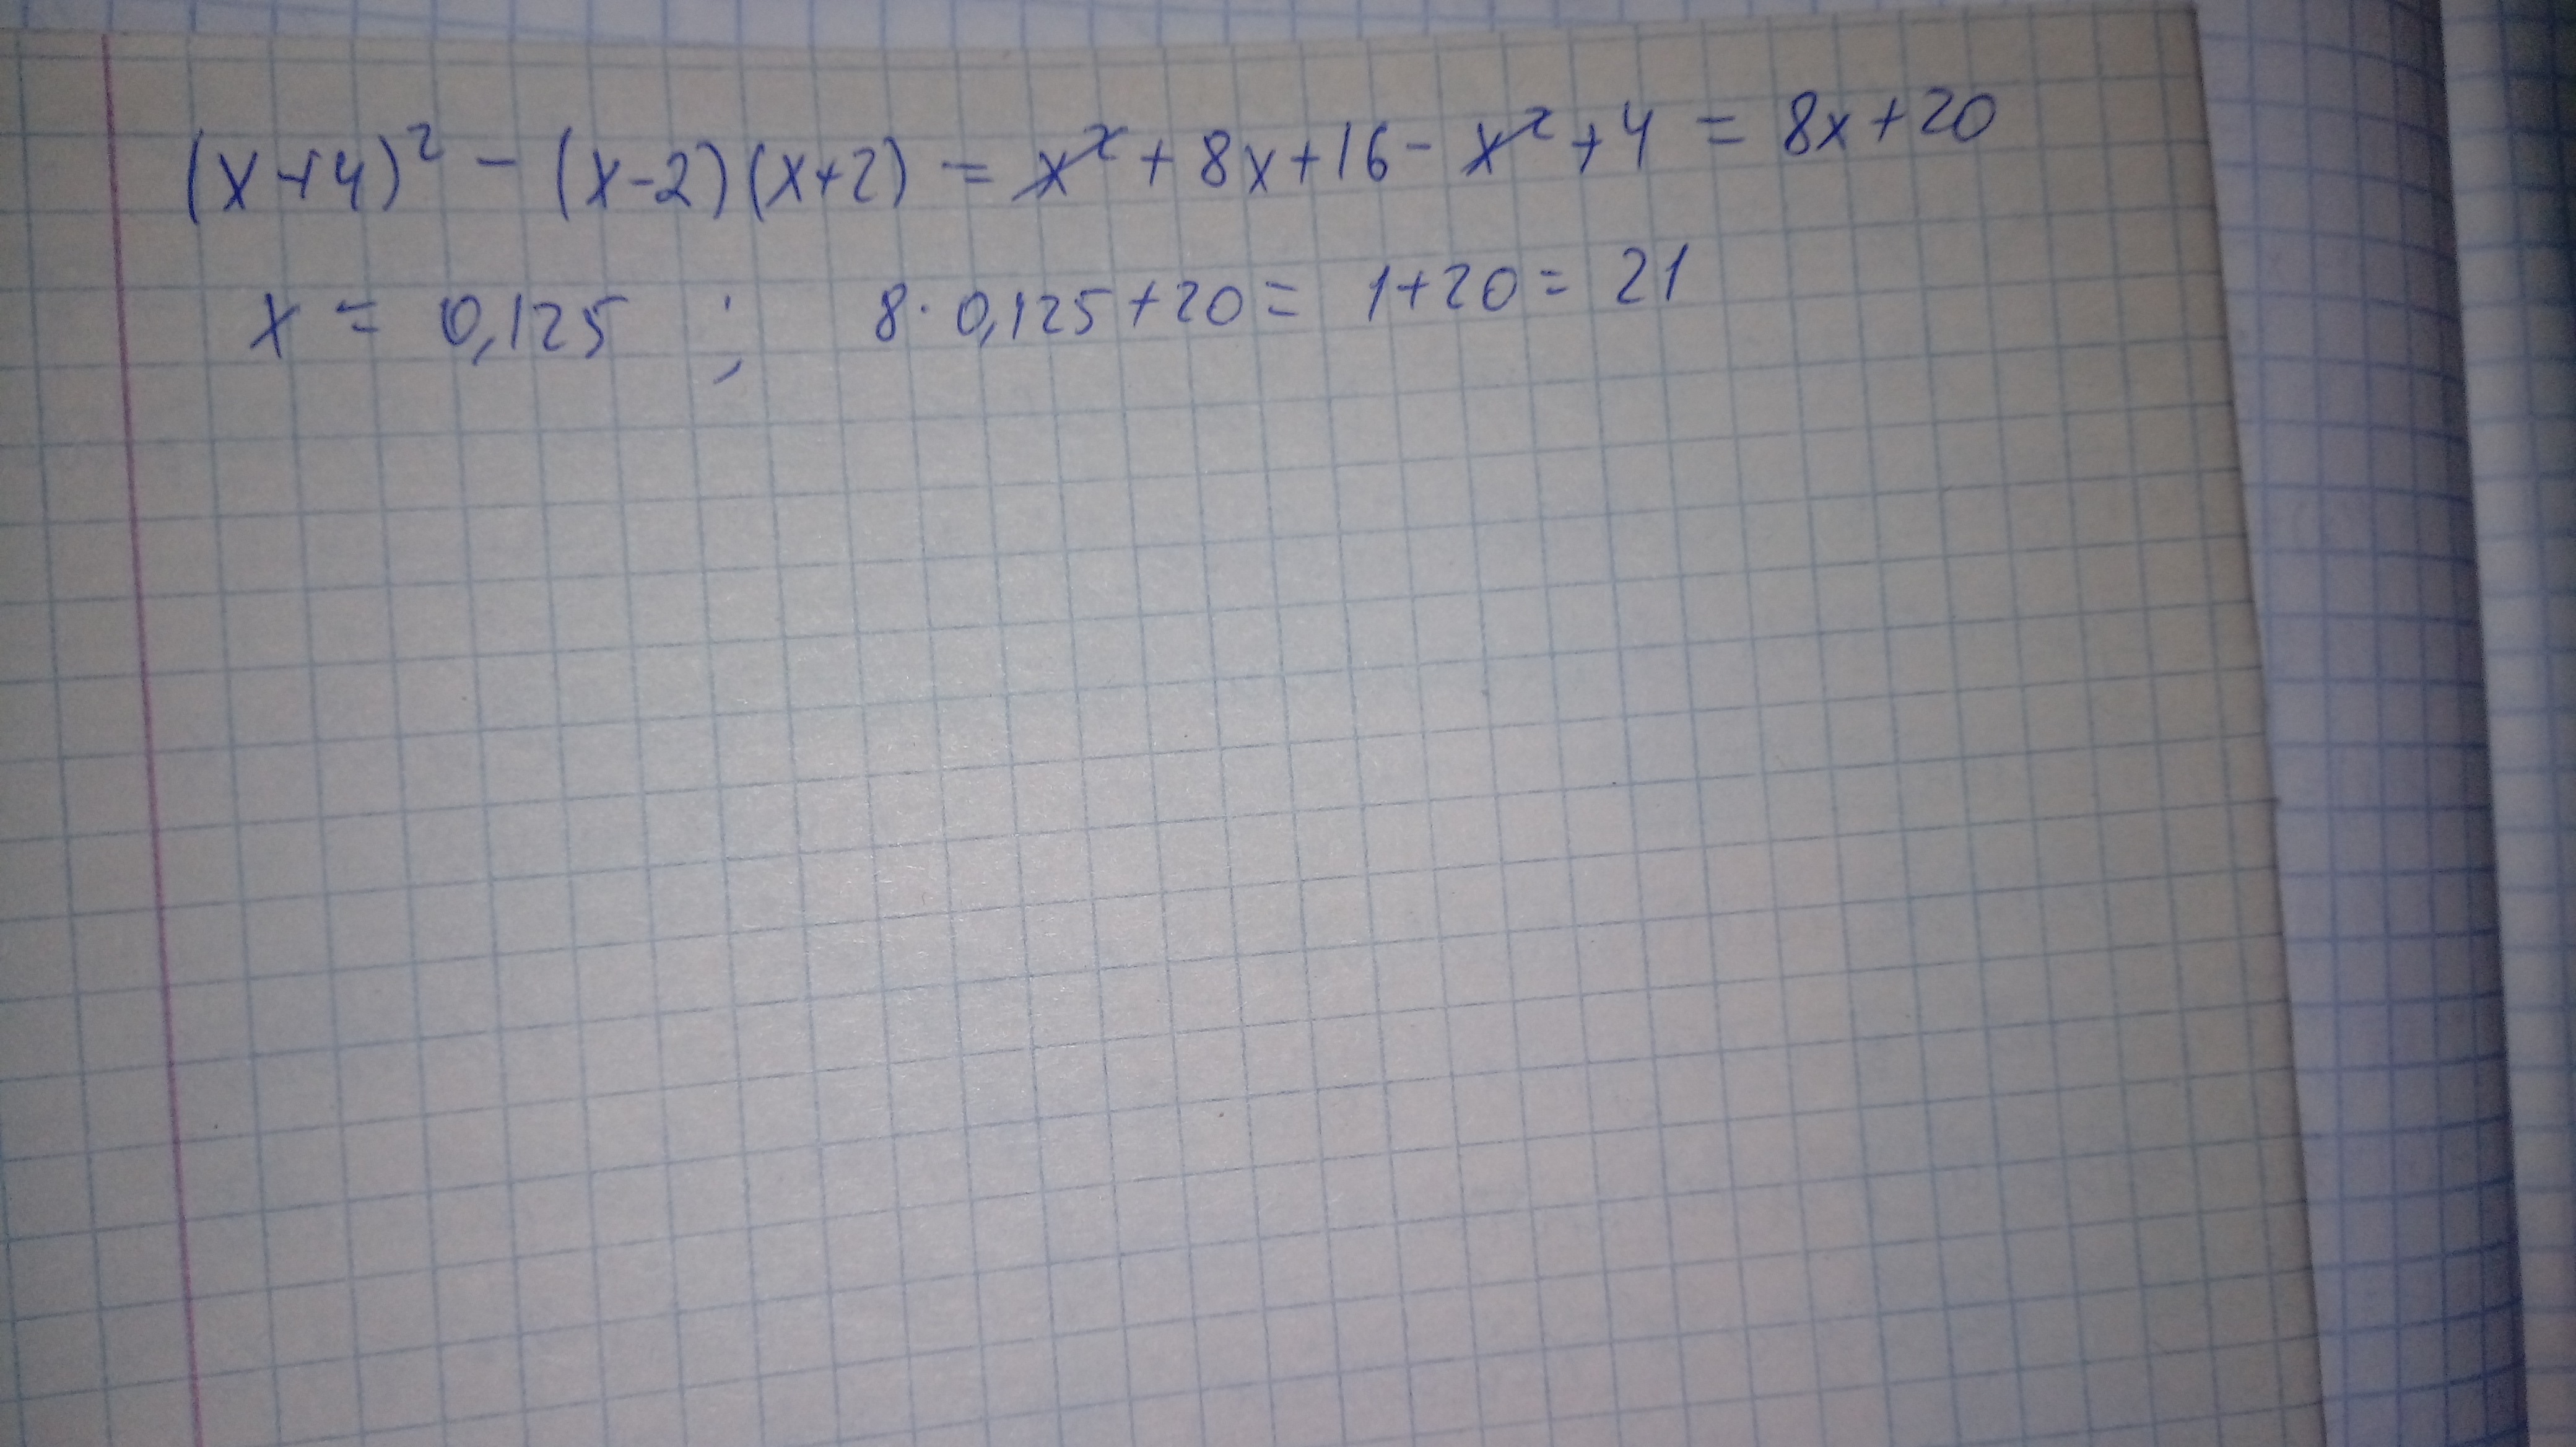 (x+4)² - (x-2)(x+2) = x² + 8x+16 - x² + 4 = 8x+20
x = 0,125 ; 8 · 0,125+20 = 1+20 = 21